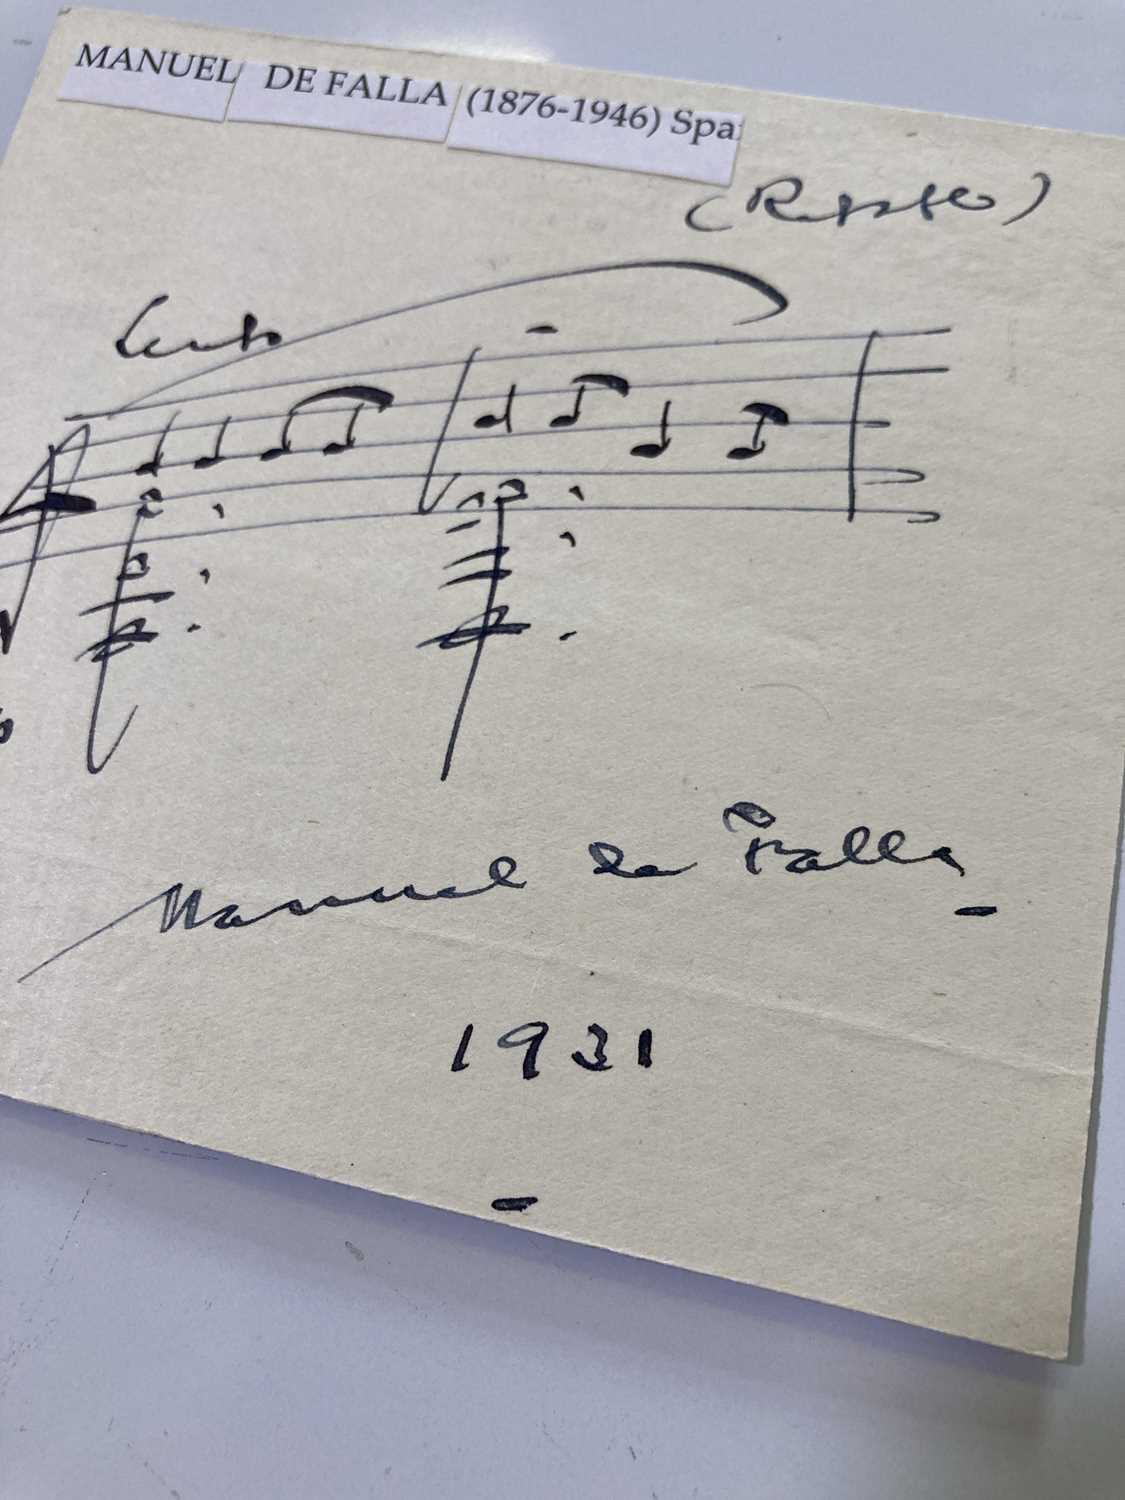 MANUEL DE FALLA (1876-1946) Spai
(Retablo)
Lento
Manuel de Falla
1931